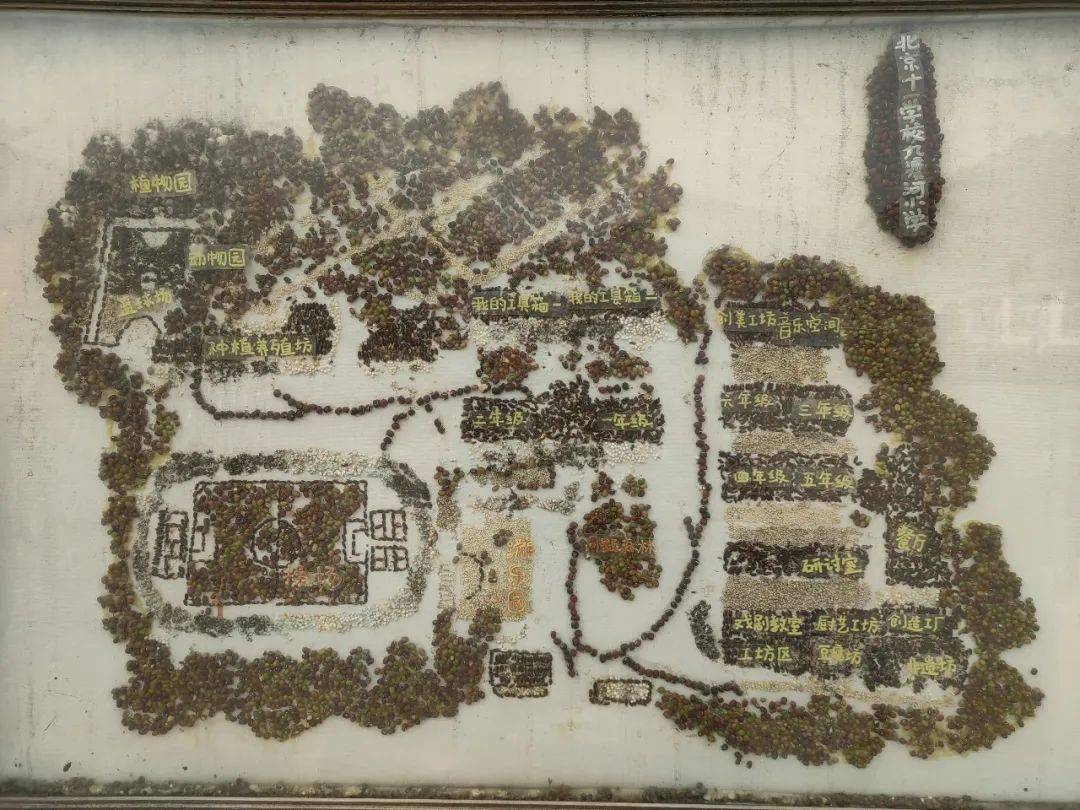 北京十一学校九渡河小学
植物园
动物园
篮球场
种植养殖坊
我的工具箱一
我的工具箱二
二年级
一年级
音乐空间
六年级
三年级
四年级
五年级
餐厅
研讨室
操场
游乐园
戏剧教室
厨艺工坊
创造工厂
工坊区
豆腐坊